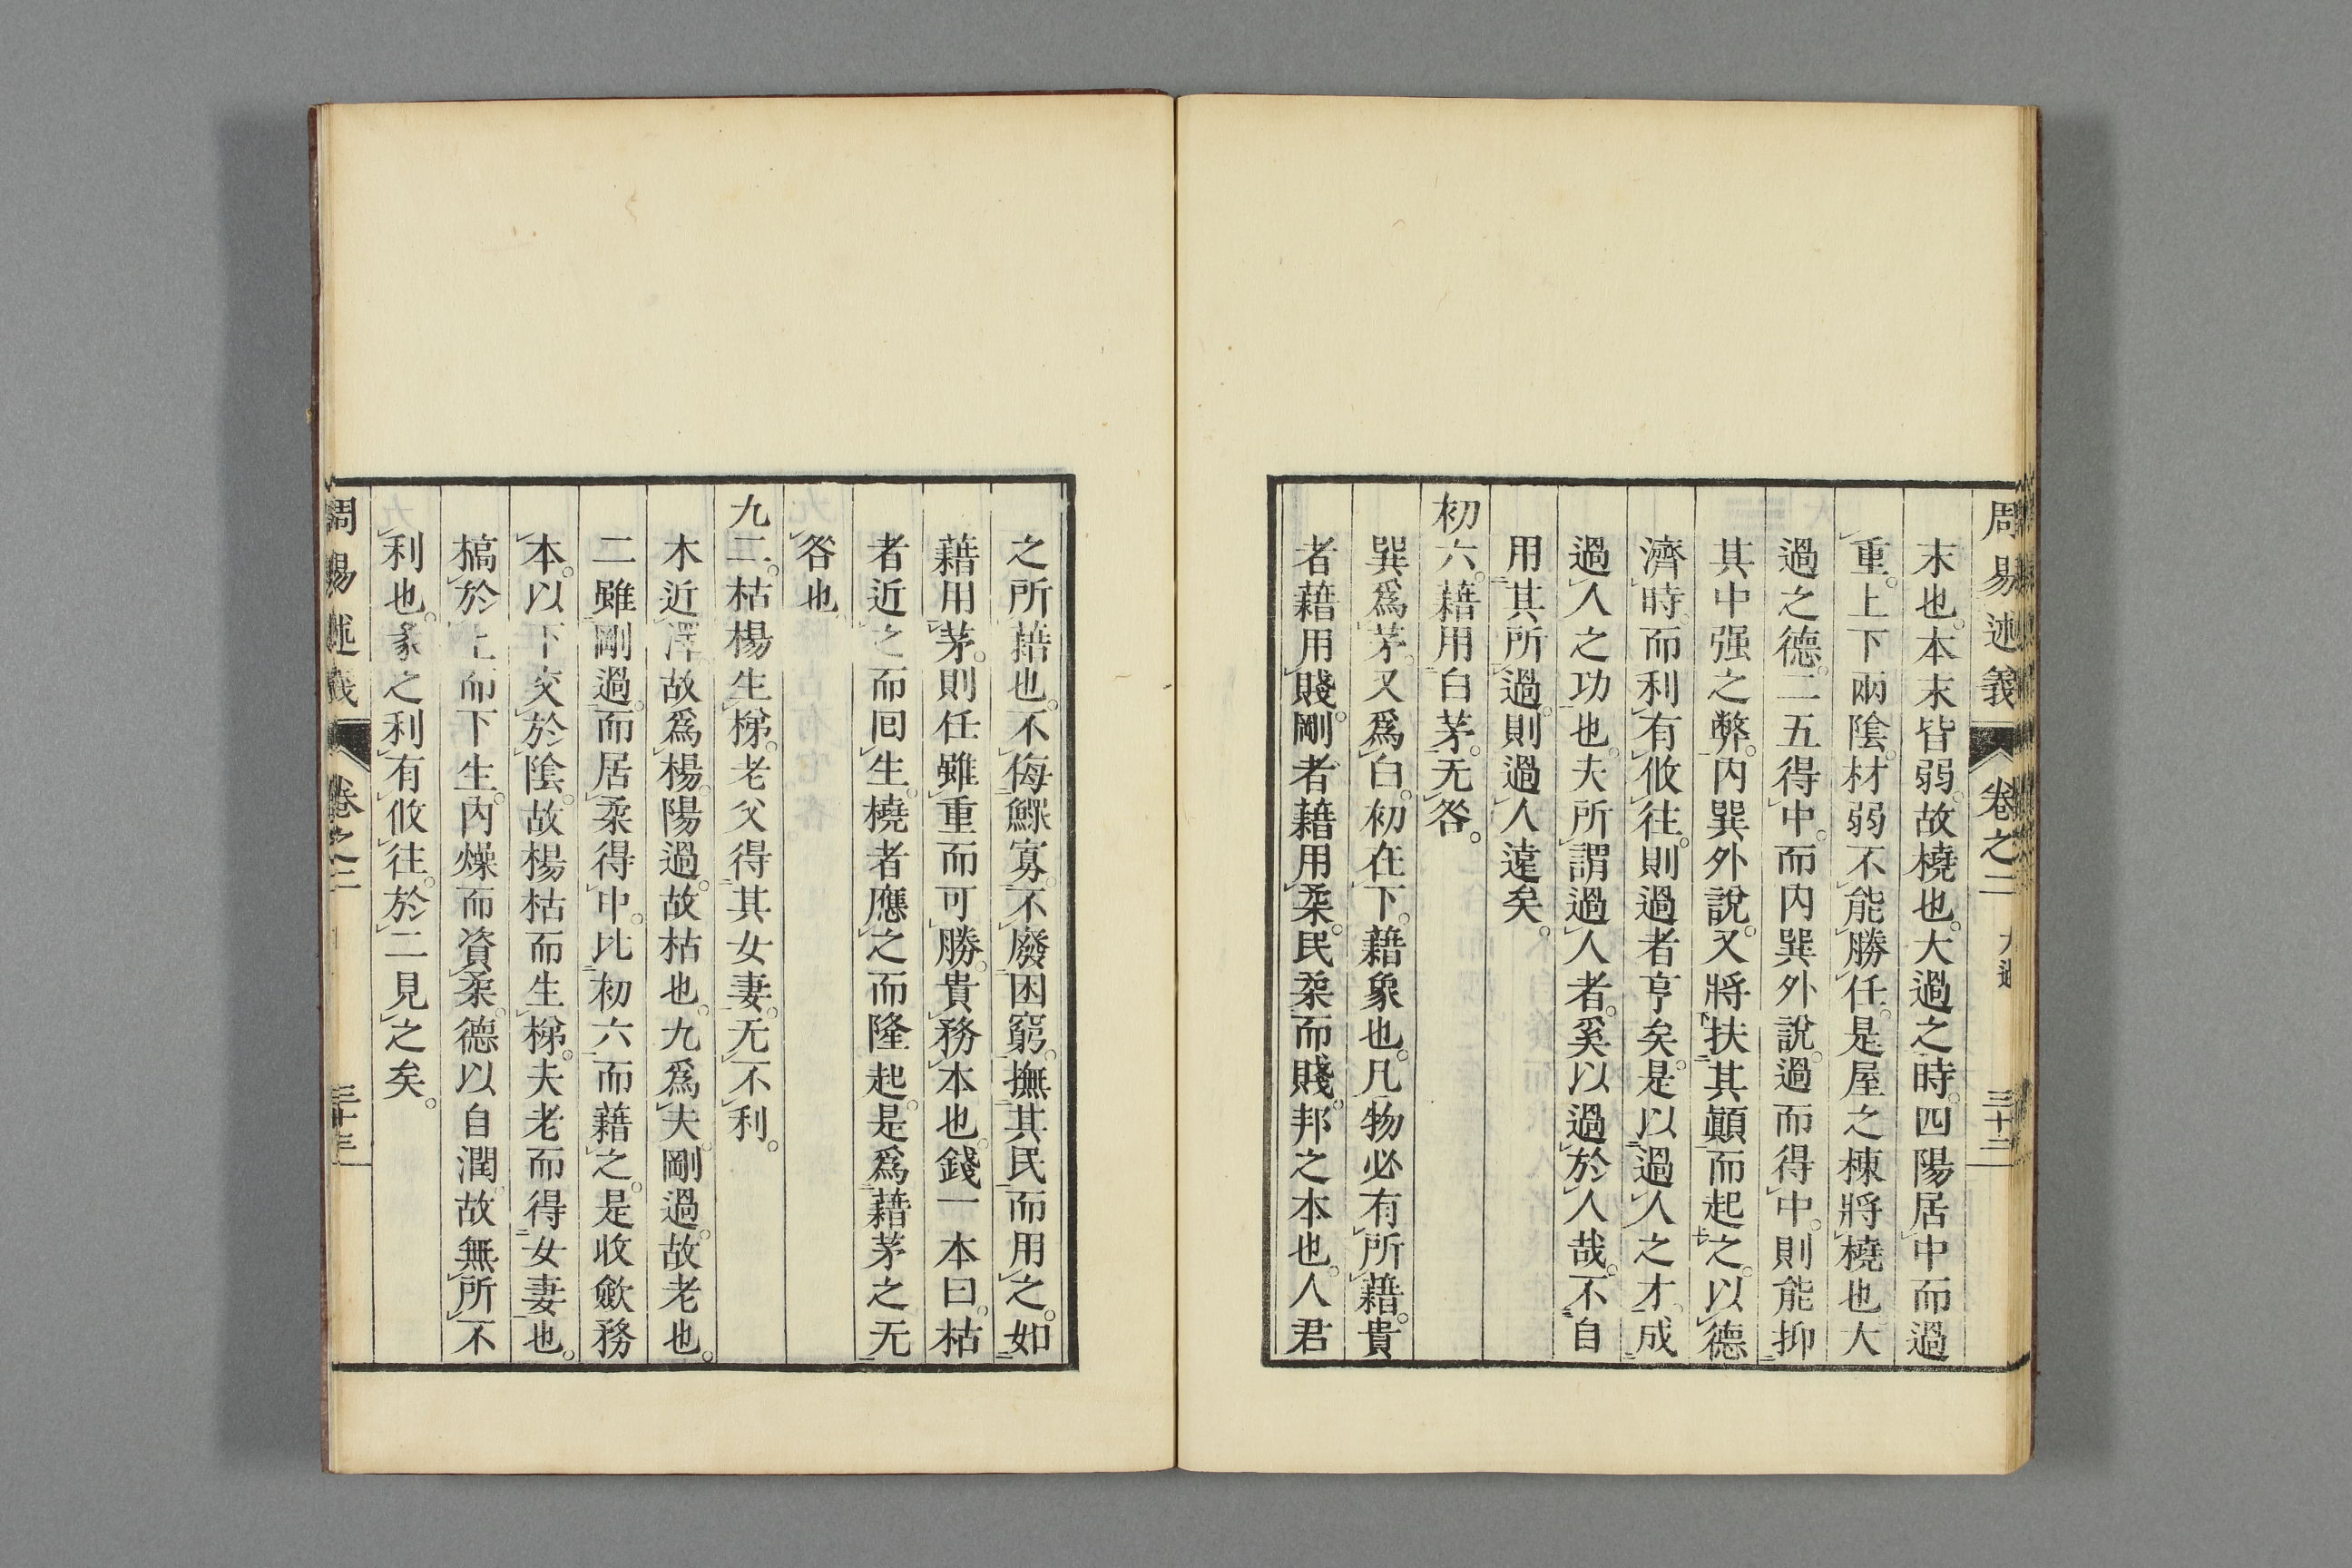 周易述義 卷之二 大過 三十二
末也。本末皆弱。故橈也。大過之時。四陽居中而過
重。上下兩陰。材弱不能勝任。是屋之棟將橈也大
過之德。二五得中。而內巽外說。過而得中。則能抑
其中强之弊。內巽外說。又將扶其顚而起之。以德
濟時。而利有攸往。則過者亨矣。是以過人之才。成
過人之功也。夫所謂過人者。奚以過於人哉。不自
用其所過。則過人遠矣。
初六。藉用白茅。无咎。
巽爲茅。又爲白。初在下。藉象也。凡物必有所藉。貴
者藉用賤。剛者藉用柔。民柔而賤。邦之本也。人君
之所藉也。不侮鰥寡。不廢困窮。撫其民而用之。如
藉用茅。則任雖重而可勝。貴務本也。錢一本曰。枯
者近之而回生。橈者應之而隆起。是爲藉茅之无
咎也
九二。枯楊生稊。老父得其女妻。无不利。
木近澤故爲楊。陽過。故枯也。九爲夫。剛過。故老也。
二雖剛過。而居柔得中。比初六而藉之。是收斂務
本。以下交於陰。故楊枯而生稊。夫老而得女妻也。
槁於上而下生。內燥而資柔。德以自潤。故無所不
利也。彖之利有攸往。於二見之矣。
周易述義 卷之二 三十三